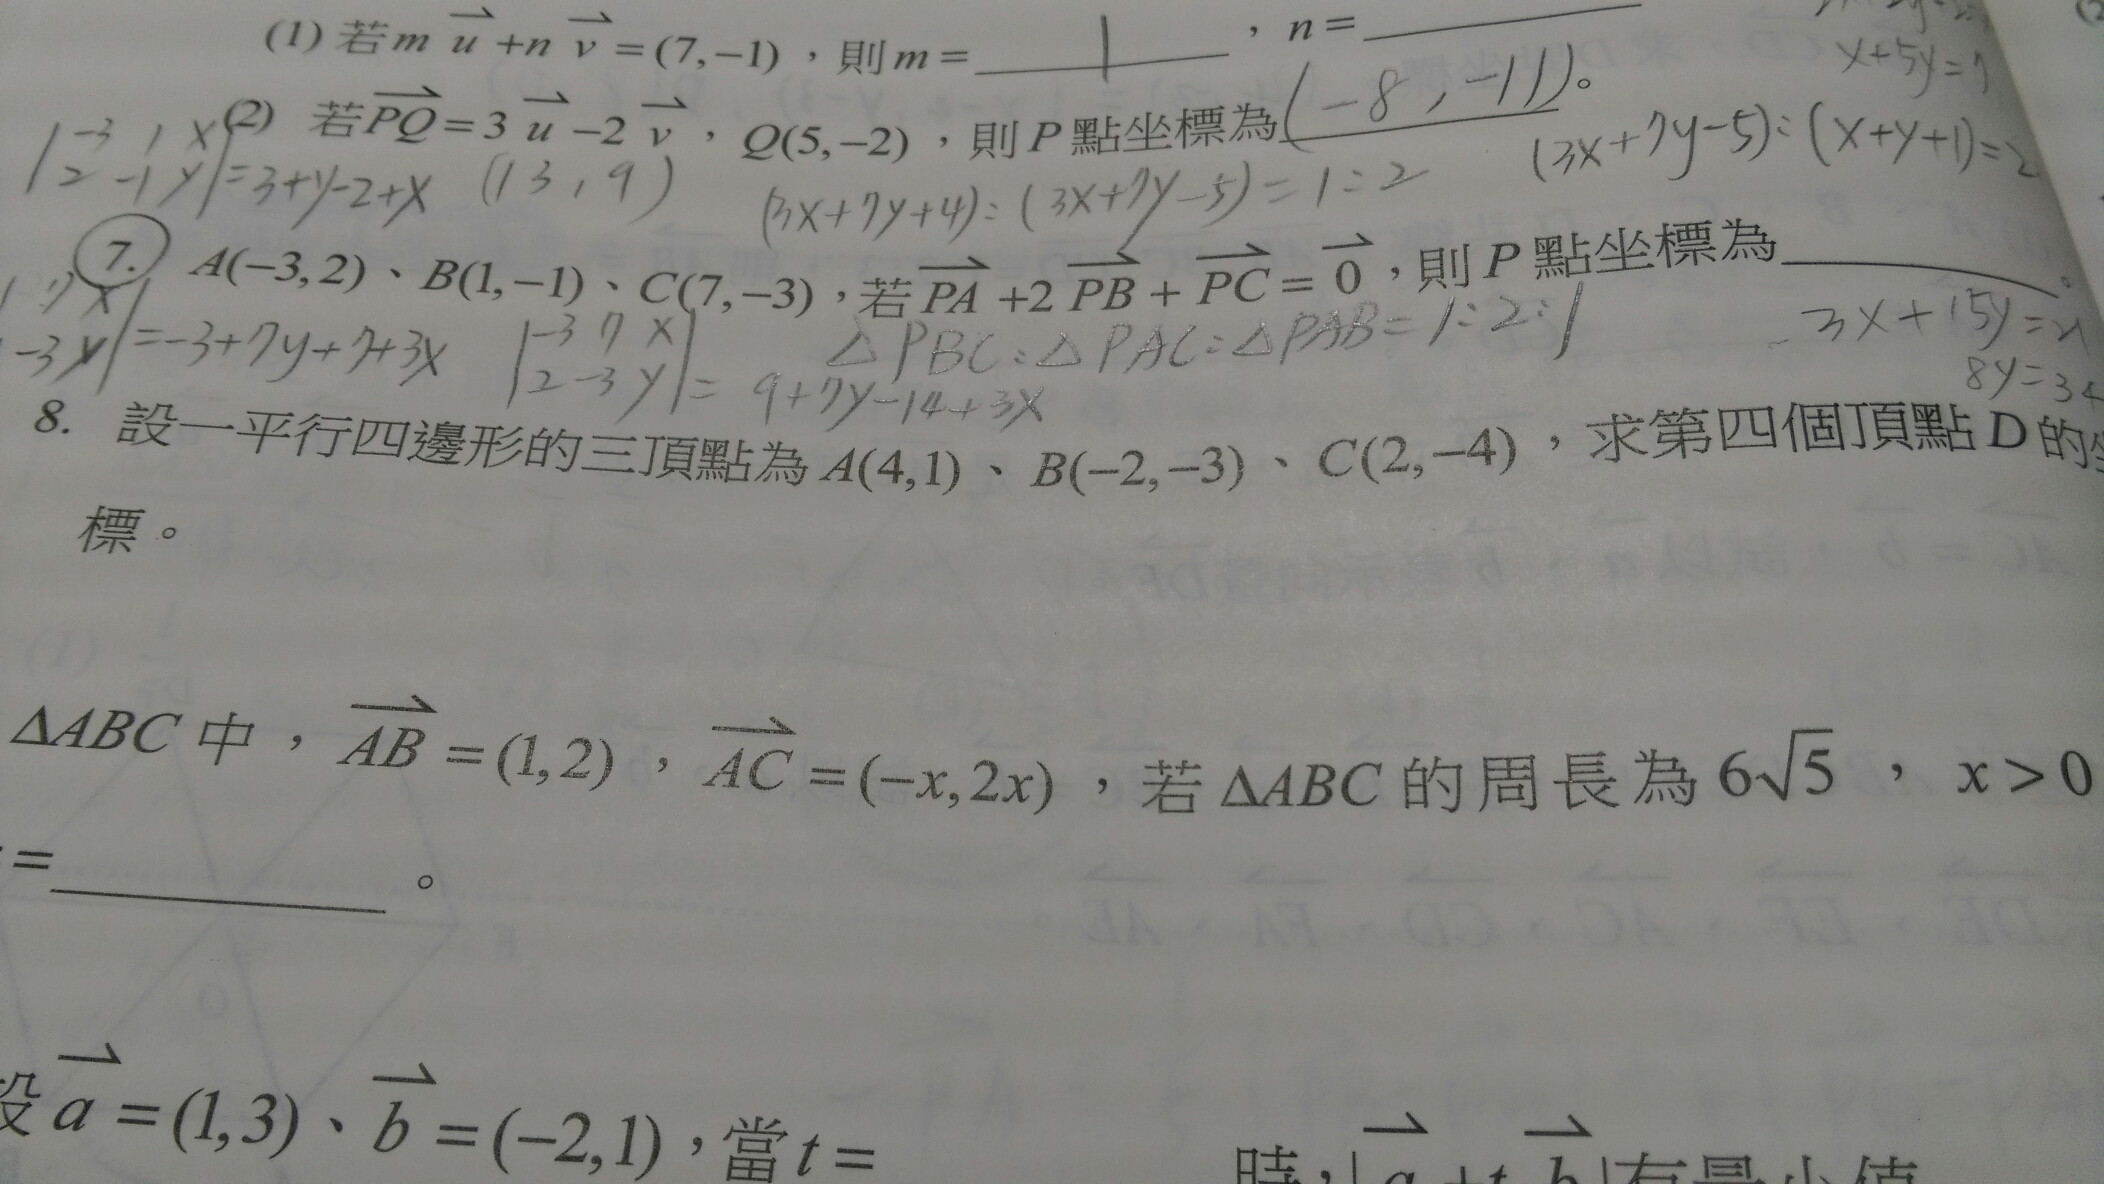 (1) 若 m u + n v = (7, −1)，則 m = 1 ，n =
(2) 若 PQ = 3 u − 2 v，Q(5, −2)，則 P 點坐標為 (−8, −11)。
x+5y=7
|−3 1 x
2 −1 y| = 3+y−2+x (13, 9)
(3x+7y+4):(3x+7y−5)=1:2
(3x+7y−5):(x+y+1)=2
7. A(−3, 2)、B(1, −1)、C(7, −3)，若 PA + 2 PB + PC = 0，則 P 點坐標為 。
7 x
−3 y| = −3+7y+7+3x
|−3 7 x
2 −3 y| = 9+7y−14+3x
△PBC:△PAC:△PAB=1:2:1
3x+15y=21
8y=34
8. 設一平行四邊形的三頂點為 A(4,1)、B(−2,−3)、C(2,−4)，求第四個頂點 D 的坐
標。
ΔABC 中，AB = (1, 2)，AC = (−x, 2x)，若 ΔABC 的周長為 6√5，x > 0
= 。
設 a = (1,3)、b = (−2,1)，當 t = 時，| a + t b | 有最小值